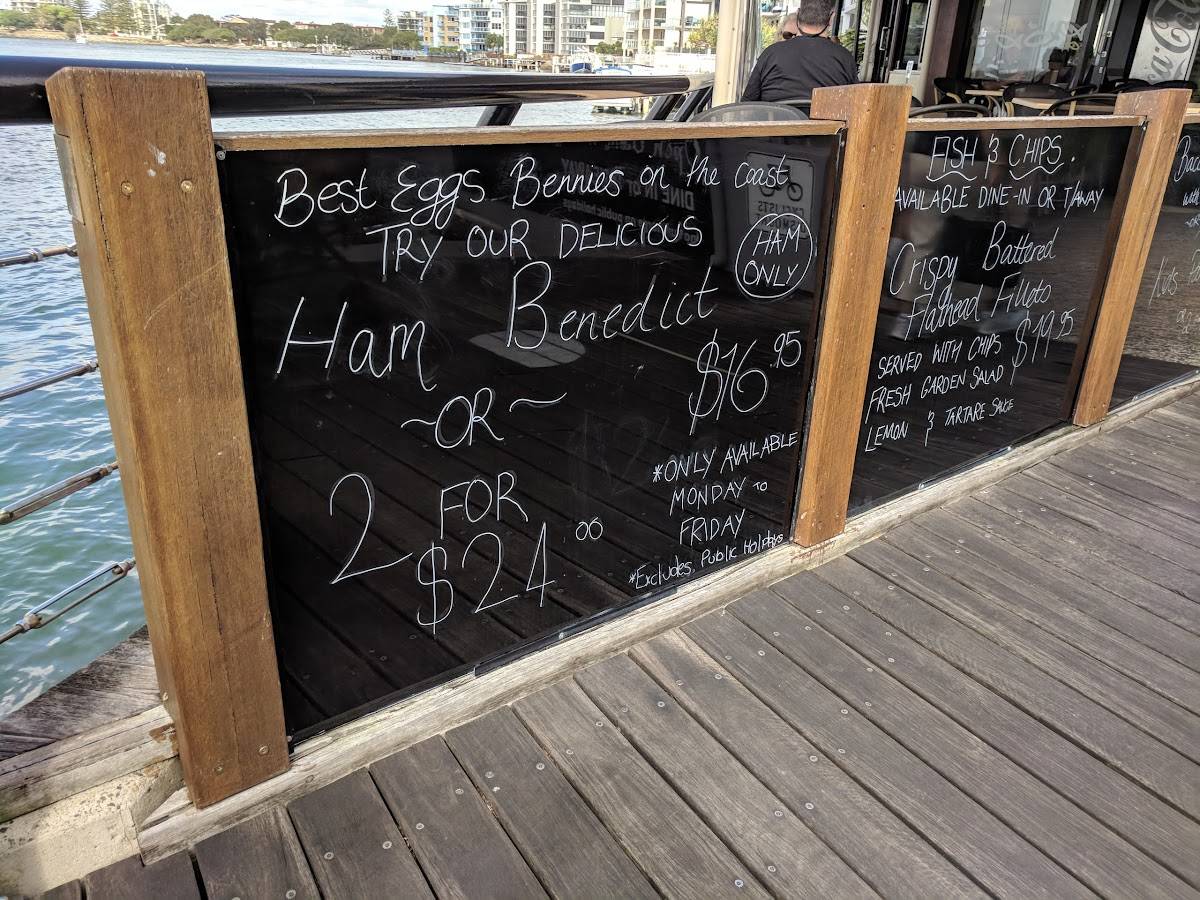 Best Eggs Bennies on the coast
TRY OUR DELICIOUS
HAM
ONLY
Ham Benedict
$16.95
~OR~
2 FOR
$24.00
*ONLY AVAILABLE
MONDAY TO
FRIDAY
*Excludes Public Holidays
FISH & CHIPS.
AVAILABLE DINE-IN OR T/AWAY
Crispy Battered
Flathead Fillets
$19.95
SERVED WITH CHIPS
FRESH GARDEN SALAD
LEMON & TARTARE SAUCE
Coca-Cola
CYCLISTS
DINE IN OR